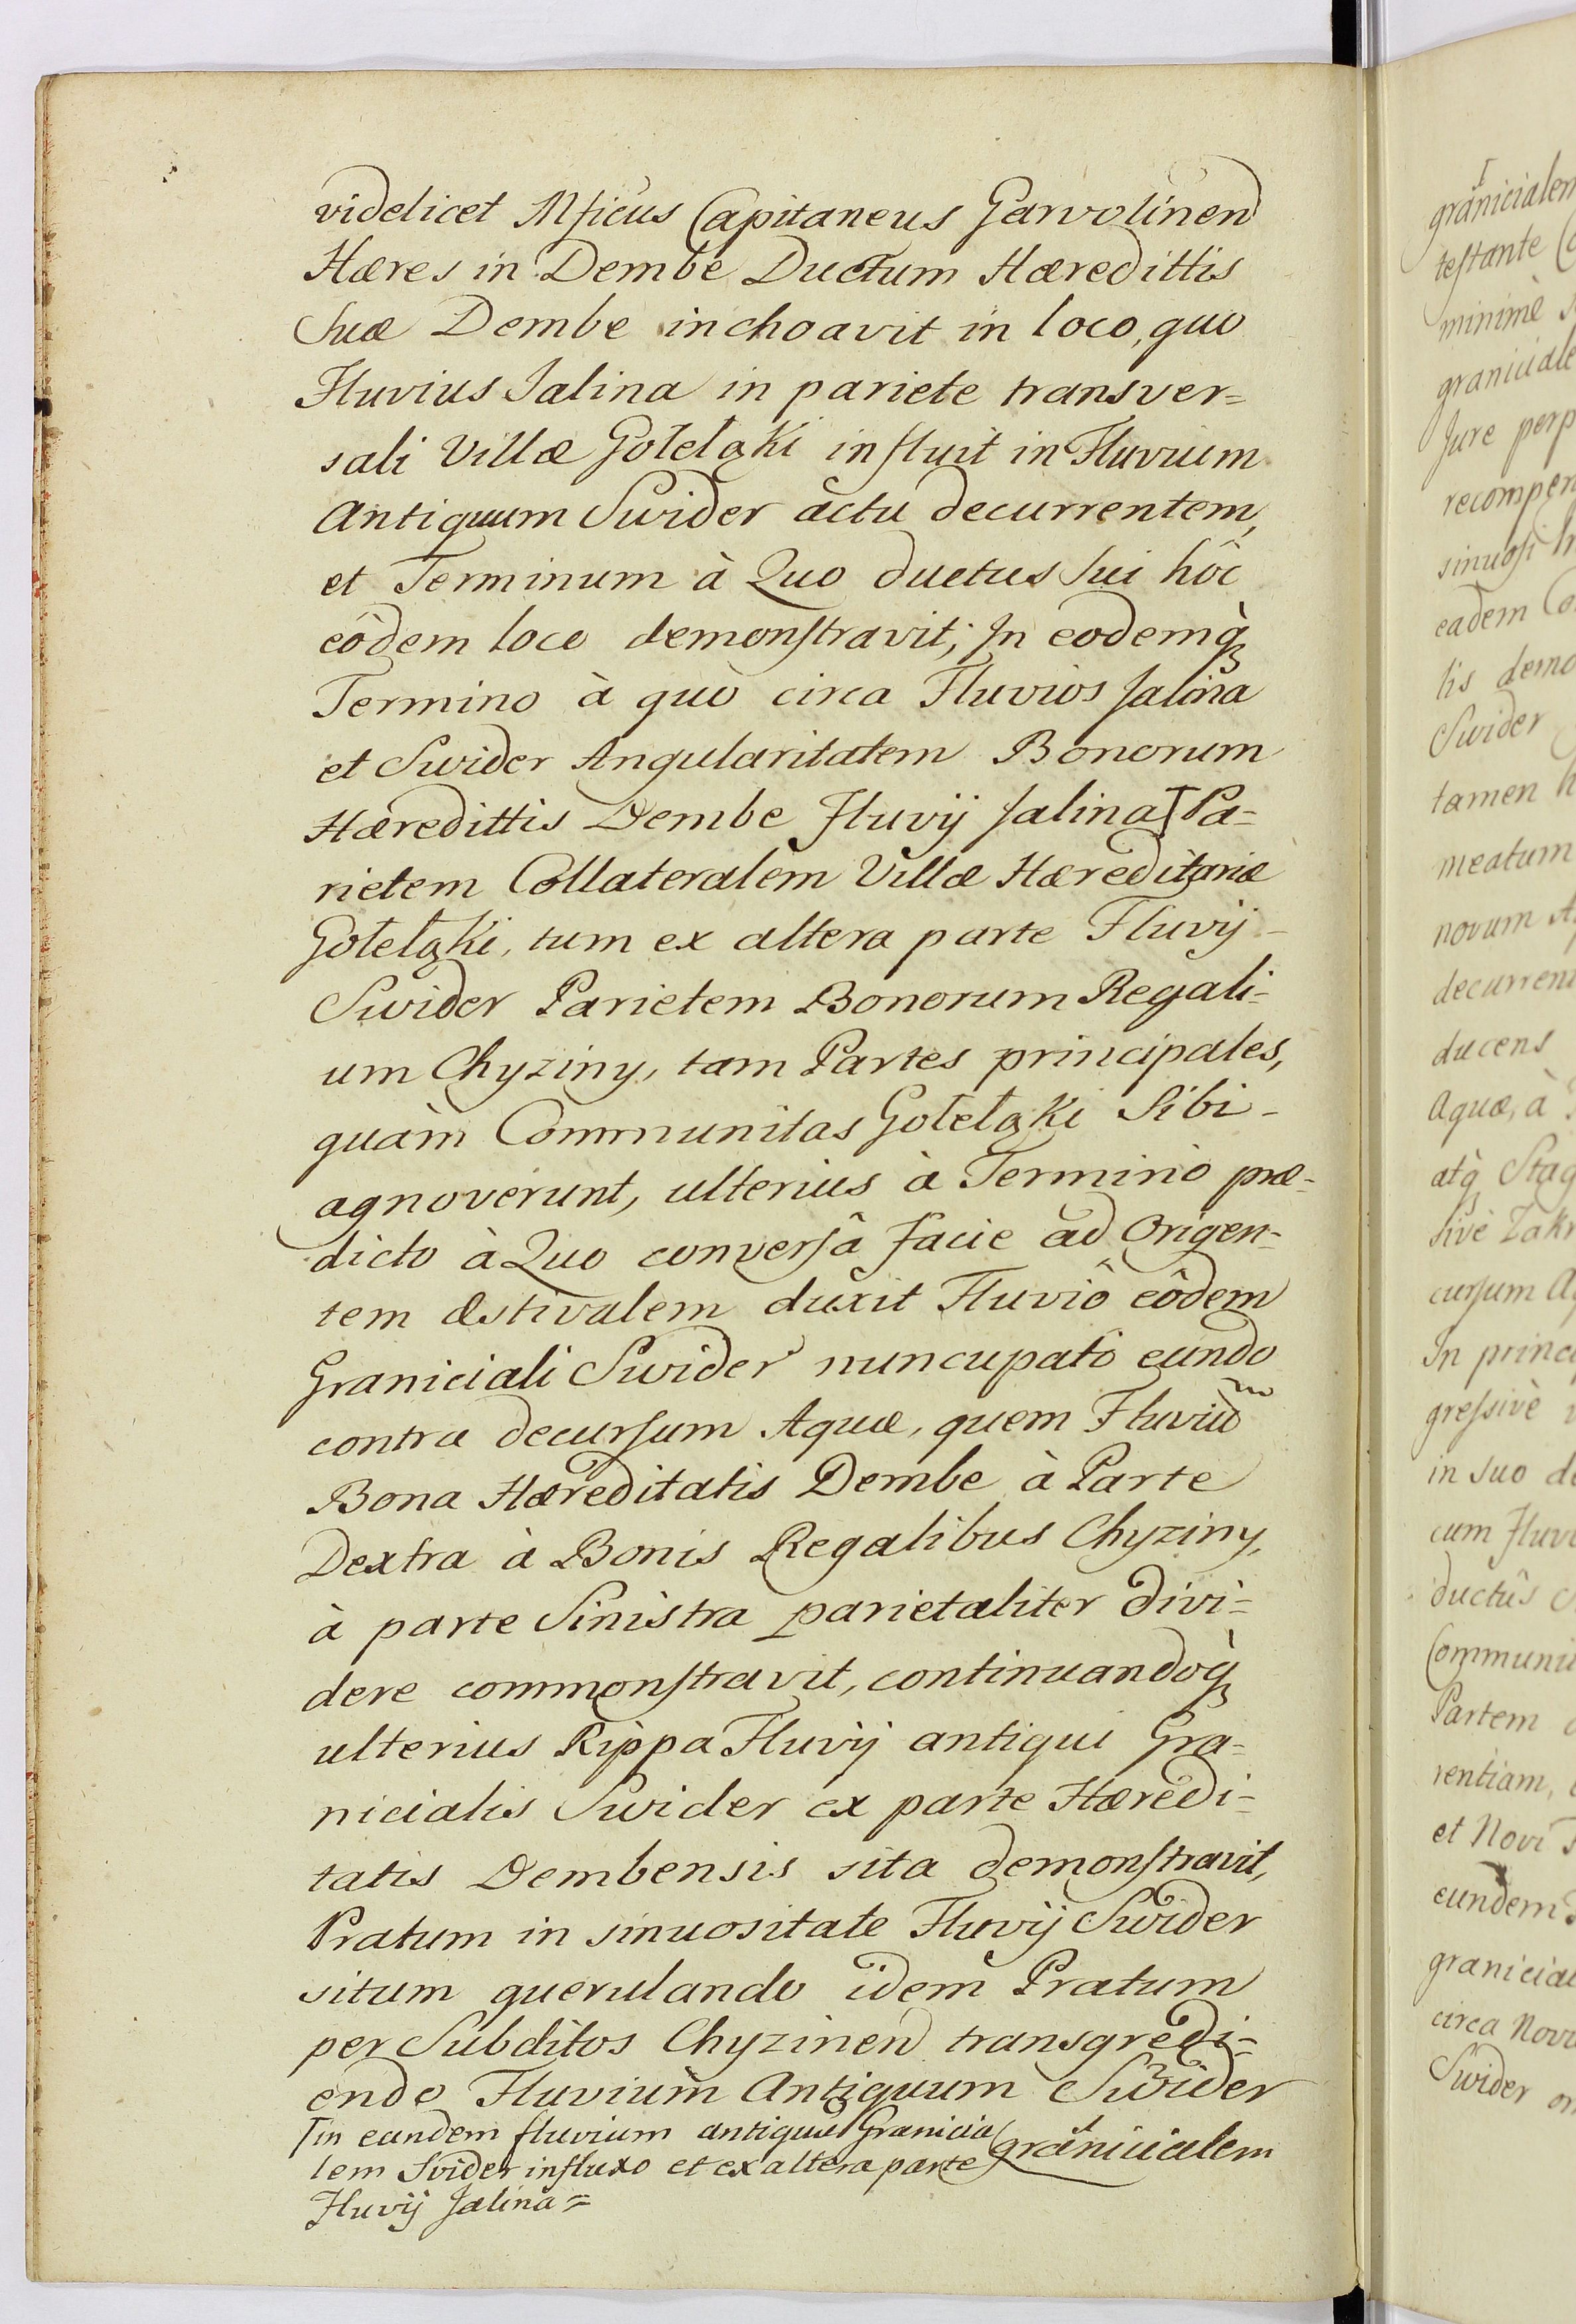 videlicet Mficus Capitaneus Garvolinen
Hæres in Dembe Ductum Hæredittis
Suæ Dembe inchoavit in loco, quo
Fluvius Jalina in pariete transver=
sali Villæ Gołełąki influit in Fluvium
Antiquum Swider actu decurrentem,
et Terminum à Quo ductus Sui hôc
eôdem loco demonstravit; In eodemq̀
Termino à quò circa Fluvios Jalina
et Swider Angularitatem Bonorum
Hæredittis Dembe Fluvij Jalina⌈ Pa=
rietem Collateralem Villæ Hæreditariæ
Gołełąki, tum ex altera parte Fluvij
Swider Parietem Bonorum Regali=
um Chyziny, tam Partes principales,
quàm Communitas Gołełąki Sibi
agnoverunt, ulterius à Termino præ=
dicto à Quo conversâ facie ad Origen=
tem æstivalem duxit Fluviô eôdem
Graniciali Swider nuncupato eundo
contra decursum Aquæ, quem Fluviũ
Bona Hæreditatis Dembe à Parte
Dextra à Bonis Regalibus Chyziny,
à parte Sinistra parietaliter divi=
dere commonstravit, continuandoq̀
ulterius Rippa Fluvij antiqui Gra=
nicialis Swider ex parte Hæredi=
tatis Dembensis sita demonstravit,
Pratum in sinuositate Fluvij Swider
situm querulando idem Pratum
per Subditos Chyzinen transgredi=
endo Fluvium Antiquum Swider
⌈in eundem fluvium antiquũ Granicia
lem Svider influxo et ex altera parte
Fluvij Jalina=
granicialem
granicialem
testante
minimè
graniciale
Jure perp
recompen
sinuosi
eadem
lis demo
Swider
tamen
meatum
novum
decurrent
ducens
Aquæ, à
atq̀ Stag
sivè Zakr
cursum
In princi
gressivè
in suo
cum Fluvi
ductûs
Communi
Partem
rentiam,
et Novi
eundem
granicial
circa Novu
Swider